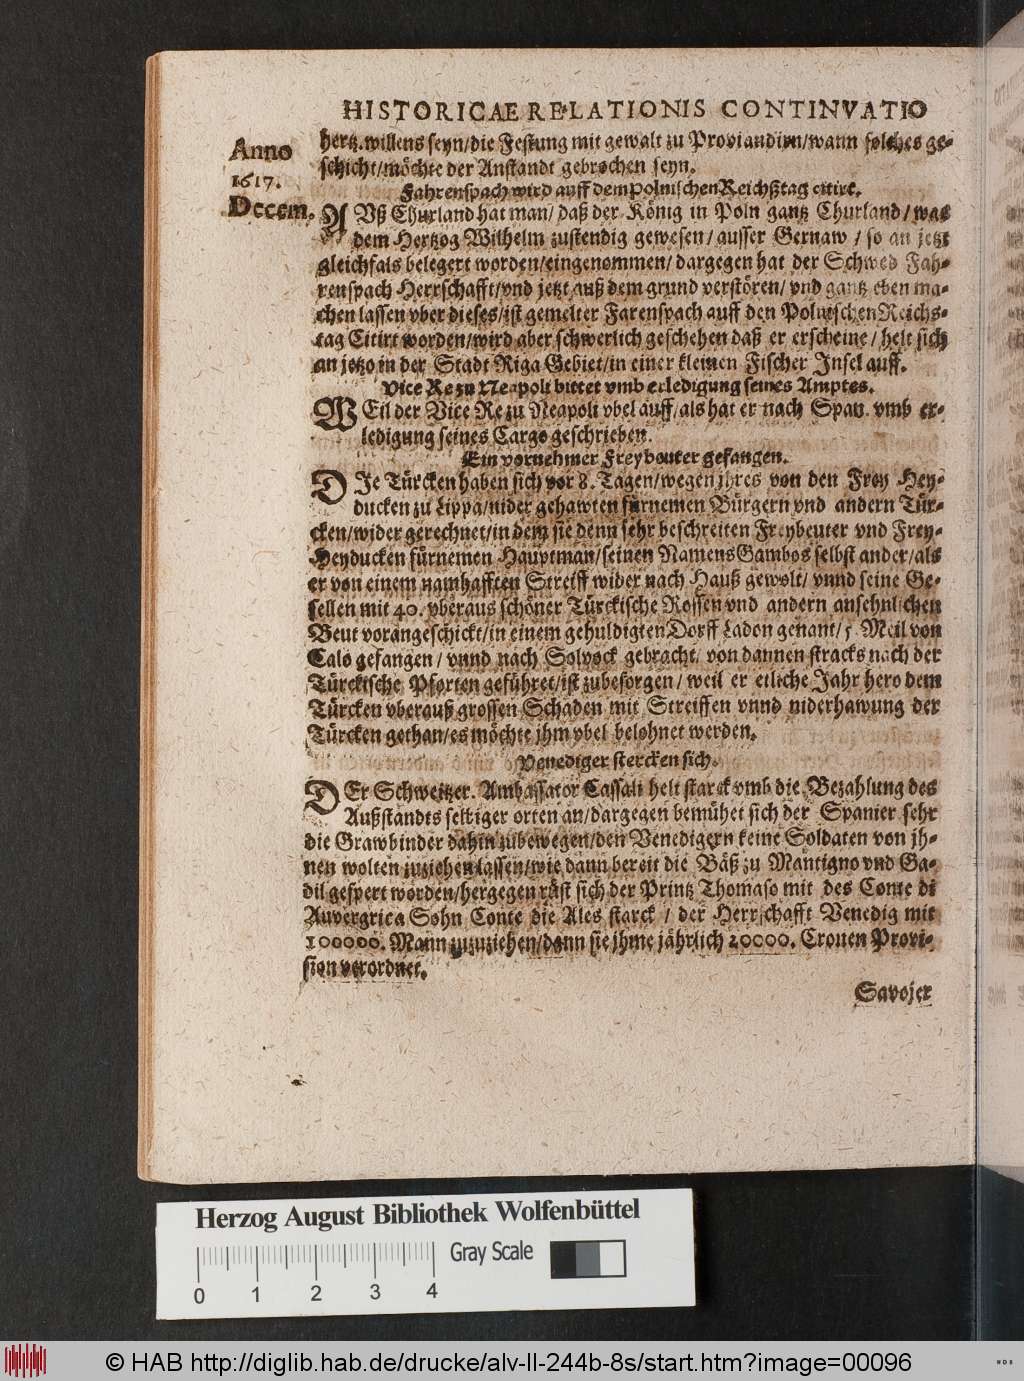 HISTORICAE RELATIONIS CONTINVATIO
Anno
1617.
Decem.
hertz. willens seyn/die Festung mit gewalt zu Proviandirn/wann solches ge-
schicht/möchte der Anstandt gebrochen seyn.
Fahrenspach wird auff dem polnischen Reichßtag citirt.
AVß Churland hat man/ daß der König in Poln gantz Churland/ was
dem Hertzog Wilhelm zustendig gewesen/ ausser Gernaw / so an jetzt
gleichfals belegert worden/eingenommen/ dargegen hat der Schwed Fah-
renspach Herrschafft/vnd jetzt auß dem grund verstören/ vnd gantz eben ma-
chen lassen vber dieses/ist gemelter Farenspach auff den Polnischen Reichs-
tag Citirt worden/wird aber schwerlich geschehen daß er erscheine / helt sich
an jetzo in der Stadt Riga Gebiet/in einer kleinen Fischer Insel auff.
Vice Re zu Neapoli bittet vmb erledigung seines Amptes.
WEil der Vice Re zu Neapoli vbel auff/als hat er nach Span. vmb er-
ledigung seines Cargo geschrieben.
Ein vornehmer Freybouter gefangen.
DIe Türcken haben sich vor 8. Tagen/wegen jhres von den Frey Hey-
ducken zu Lippa/nider gehawten fürnemen Bürgern vnd andern Tür-
cken/wider gerechnet/in dem sie denn sehr beschreiten Freybeuter vnd Frey-
Heyducken fürnemen Hauptman/seinen Namens Gambos selbst ander/als
er von einem namhafften Streiff wider nach Hauß gewolt/ vnnd seine Ge-
sellen mit 40. vberaus schöner Türckische Rossen vnd andern ansehnlichen
Beut vorangeschickt/in einem gehuldigten Dorff Ladon genant/ 5. Meil von
Calo gefangen / vnnd nach Solvock gebracht/ von dannen stracks nach der
Türckische Pforten geführet/ist zubesorgen / weil er etliche Jahr hero dem
Türcken vberauß grossen Schaden mit Streiffen vnnd niderhawung der
Türcken gethan/es möchte jhm vbel belohnet werden.
Venediger stercken sich.
DEr Schweitzer. Ambassator Cassali helt starck vmb die Bezahlung des
Außstandts selbiger orten an/dargegen bemühet sich der Spanier sehr
die Grawbinder dahin zubewegen/den Venedigern keine Soldaten von jh-
nen wolten zuziehen lassen/wie dann bereit die Bäß zu Mantigno vnd Ga-
dil gespert worden/hergegen rüst sich der Printz Thomaso mit des Conte di
Auvergrica Sohn Conte die Ales starck / der Herrschafft Venedig mit
100000. Mann zuzuziehen/dann sie jhme jährlich 20000. Cronen Provi-
sion verordnet.
Savojer
Herzog August Bibliothek Wolfenbüttel
Gray Scale
0 1 2 3 4
© HAB http://diglib.hab.de/drucke/alv-ll-244b-8s/start.htm?image=00096